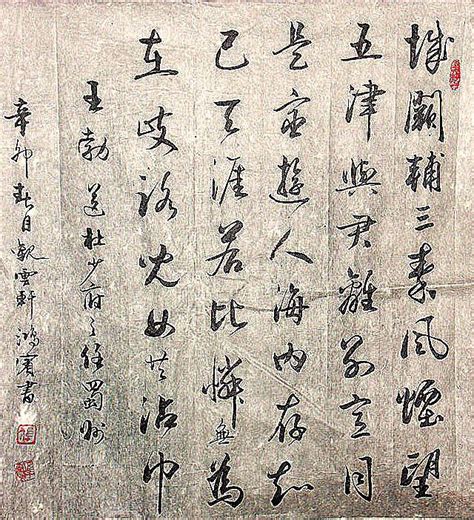 城闕輔三秦風煙望
五津與君離別意同
是宦遊人海內存知
己天涯若比隣無為
在歧路兒女共沾巾
王勃送杜少府之任蜀州
辛卯春日觀雲軒鴻賓書